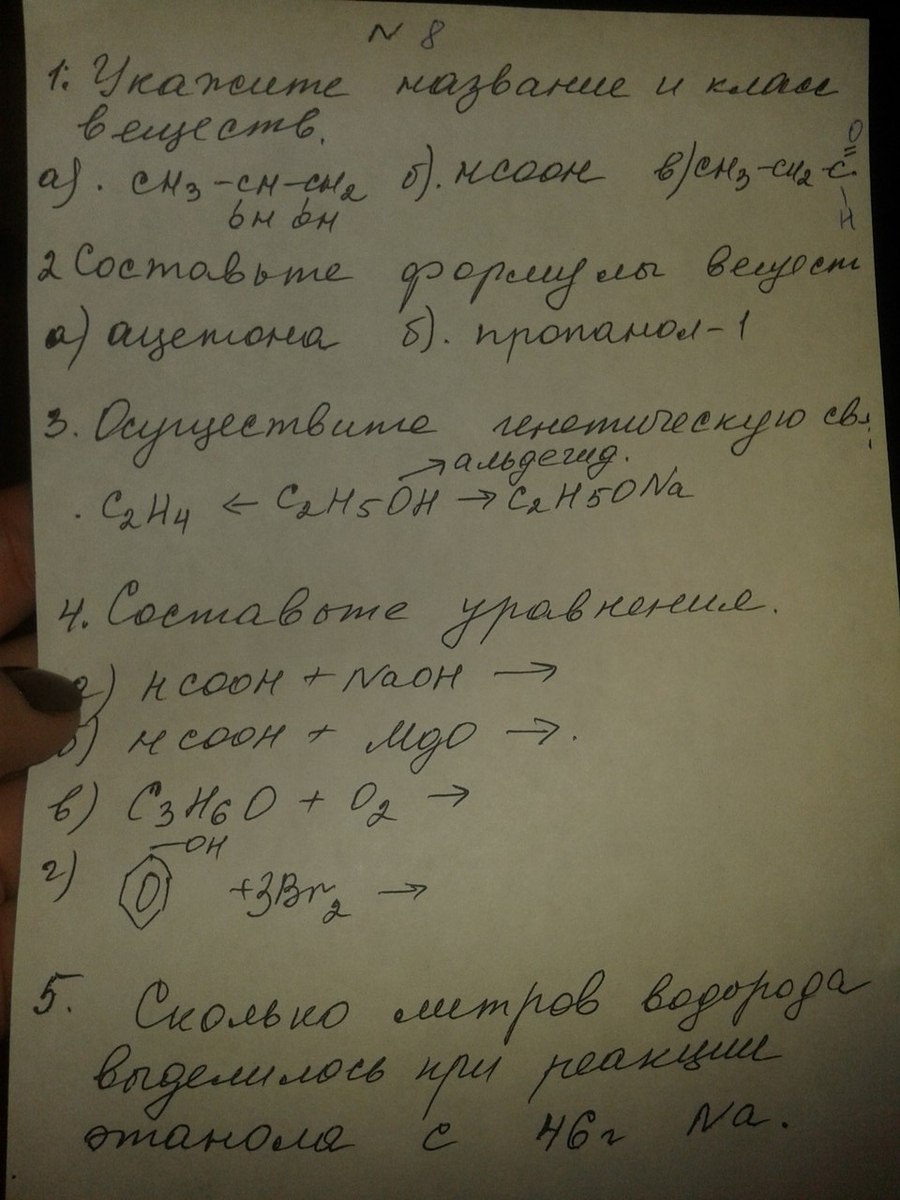 N 8
1. Укажите название и класс
веществ.
а). CH3-CH-CH2 б). HCOOH в) CH3-CH2-C=O
OH OH H
2 Составьте формулы вещест
а) ацетона б). пропанол-1
3. Осуществите генетическую свя
→ альдегид.
C2H4 ← C2H5OH → C2H5ONa
4. Составьте уравнения.
а) HCOOH + NaOH →
б) HCOOH + MgO →.
в) C3H6O + O2 →
OH
г) +3Br2 →
5. Сколько литров водорода
выделилось при реакции
этанола с 46г Na.